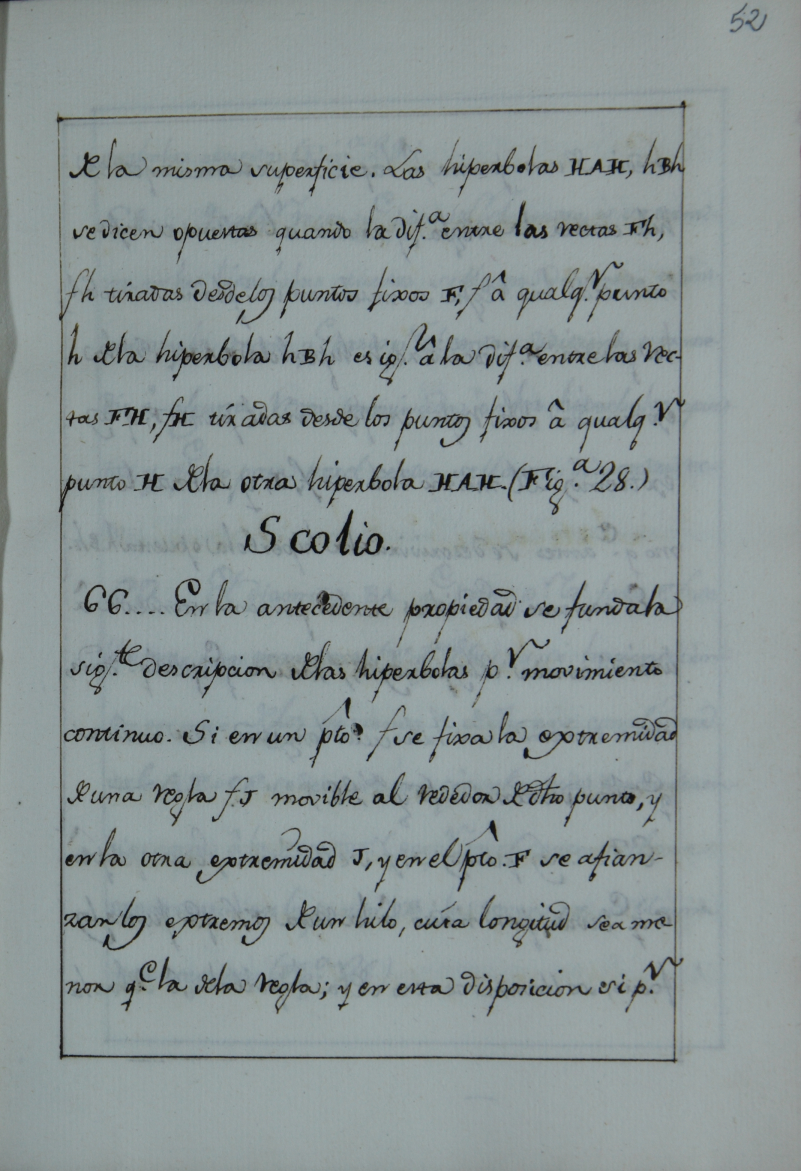 52
de la misma superficie. Las hiperbolas HAH, hBh
se dicen opuestas quando la dif.ª entre las rectas Fh,
fh tiradas desde los puntos fixos F, f â qualq.r punto
h de la hiperbola hBh es ig.l â la dif.ª entre las rec-
tas FH, fH tiradas desde los puntos fixos â qualq.r
punto H de la otra hiperbola HAH. (Fig.ª 28.)
Scolio.
66.... En la antecedente propiedad se funda la
sig.te descripcion de las hiperbolas p.r movimiento
continuo. Si en un pto f se fixa la extremidad
de una regla fJ movible al rededor de dho punto, y
en la otra extremidad J, y en el pto F se afian-
zan los extremos de un hilo, cuia longitud sea me-
nor q.e la de la regla; y en esta disposicion si p.r